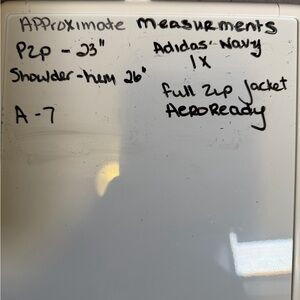 Approximate Measurments
P2p - 23" Adidas-Navy
1X
Showlder-hem 26"
Full Zip Jacket
A-7 AeroReady